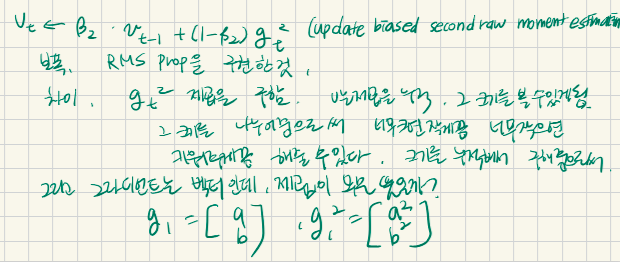 v_t ← β₂ · v_{t-1} + (1-β₂) g_t² (update biased second raw moment estimatin
보폭. RMS Prop을 구현한것.
차이. g_t² 제곱을 구함. v는제곱을 누적. 그 크기를 볼 수있게됨
그 크기를 나누어줌으로써 너무크면작게끔 너무작으면
해줄 수 있다. 크기를 누적해서 구해줌으로써.
그리고 그라디언트는 벡터인데, 제곱이 무슨 뜻일까?
g₁ = [a b], g₁² = [a² b²]